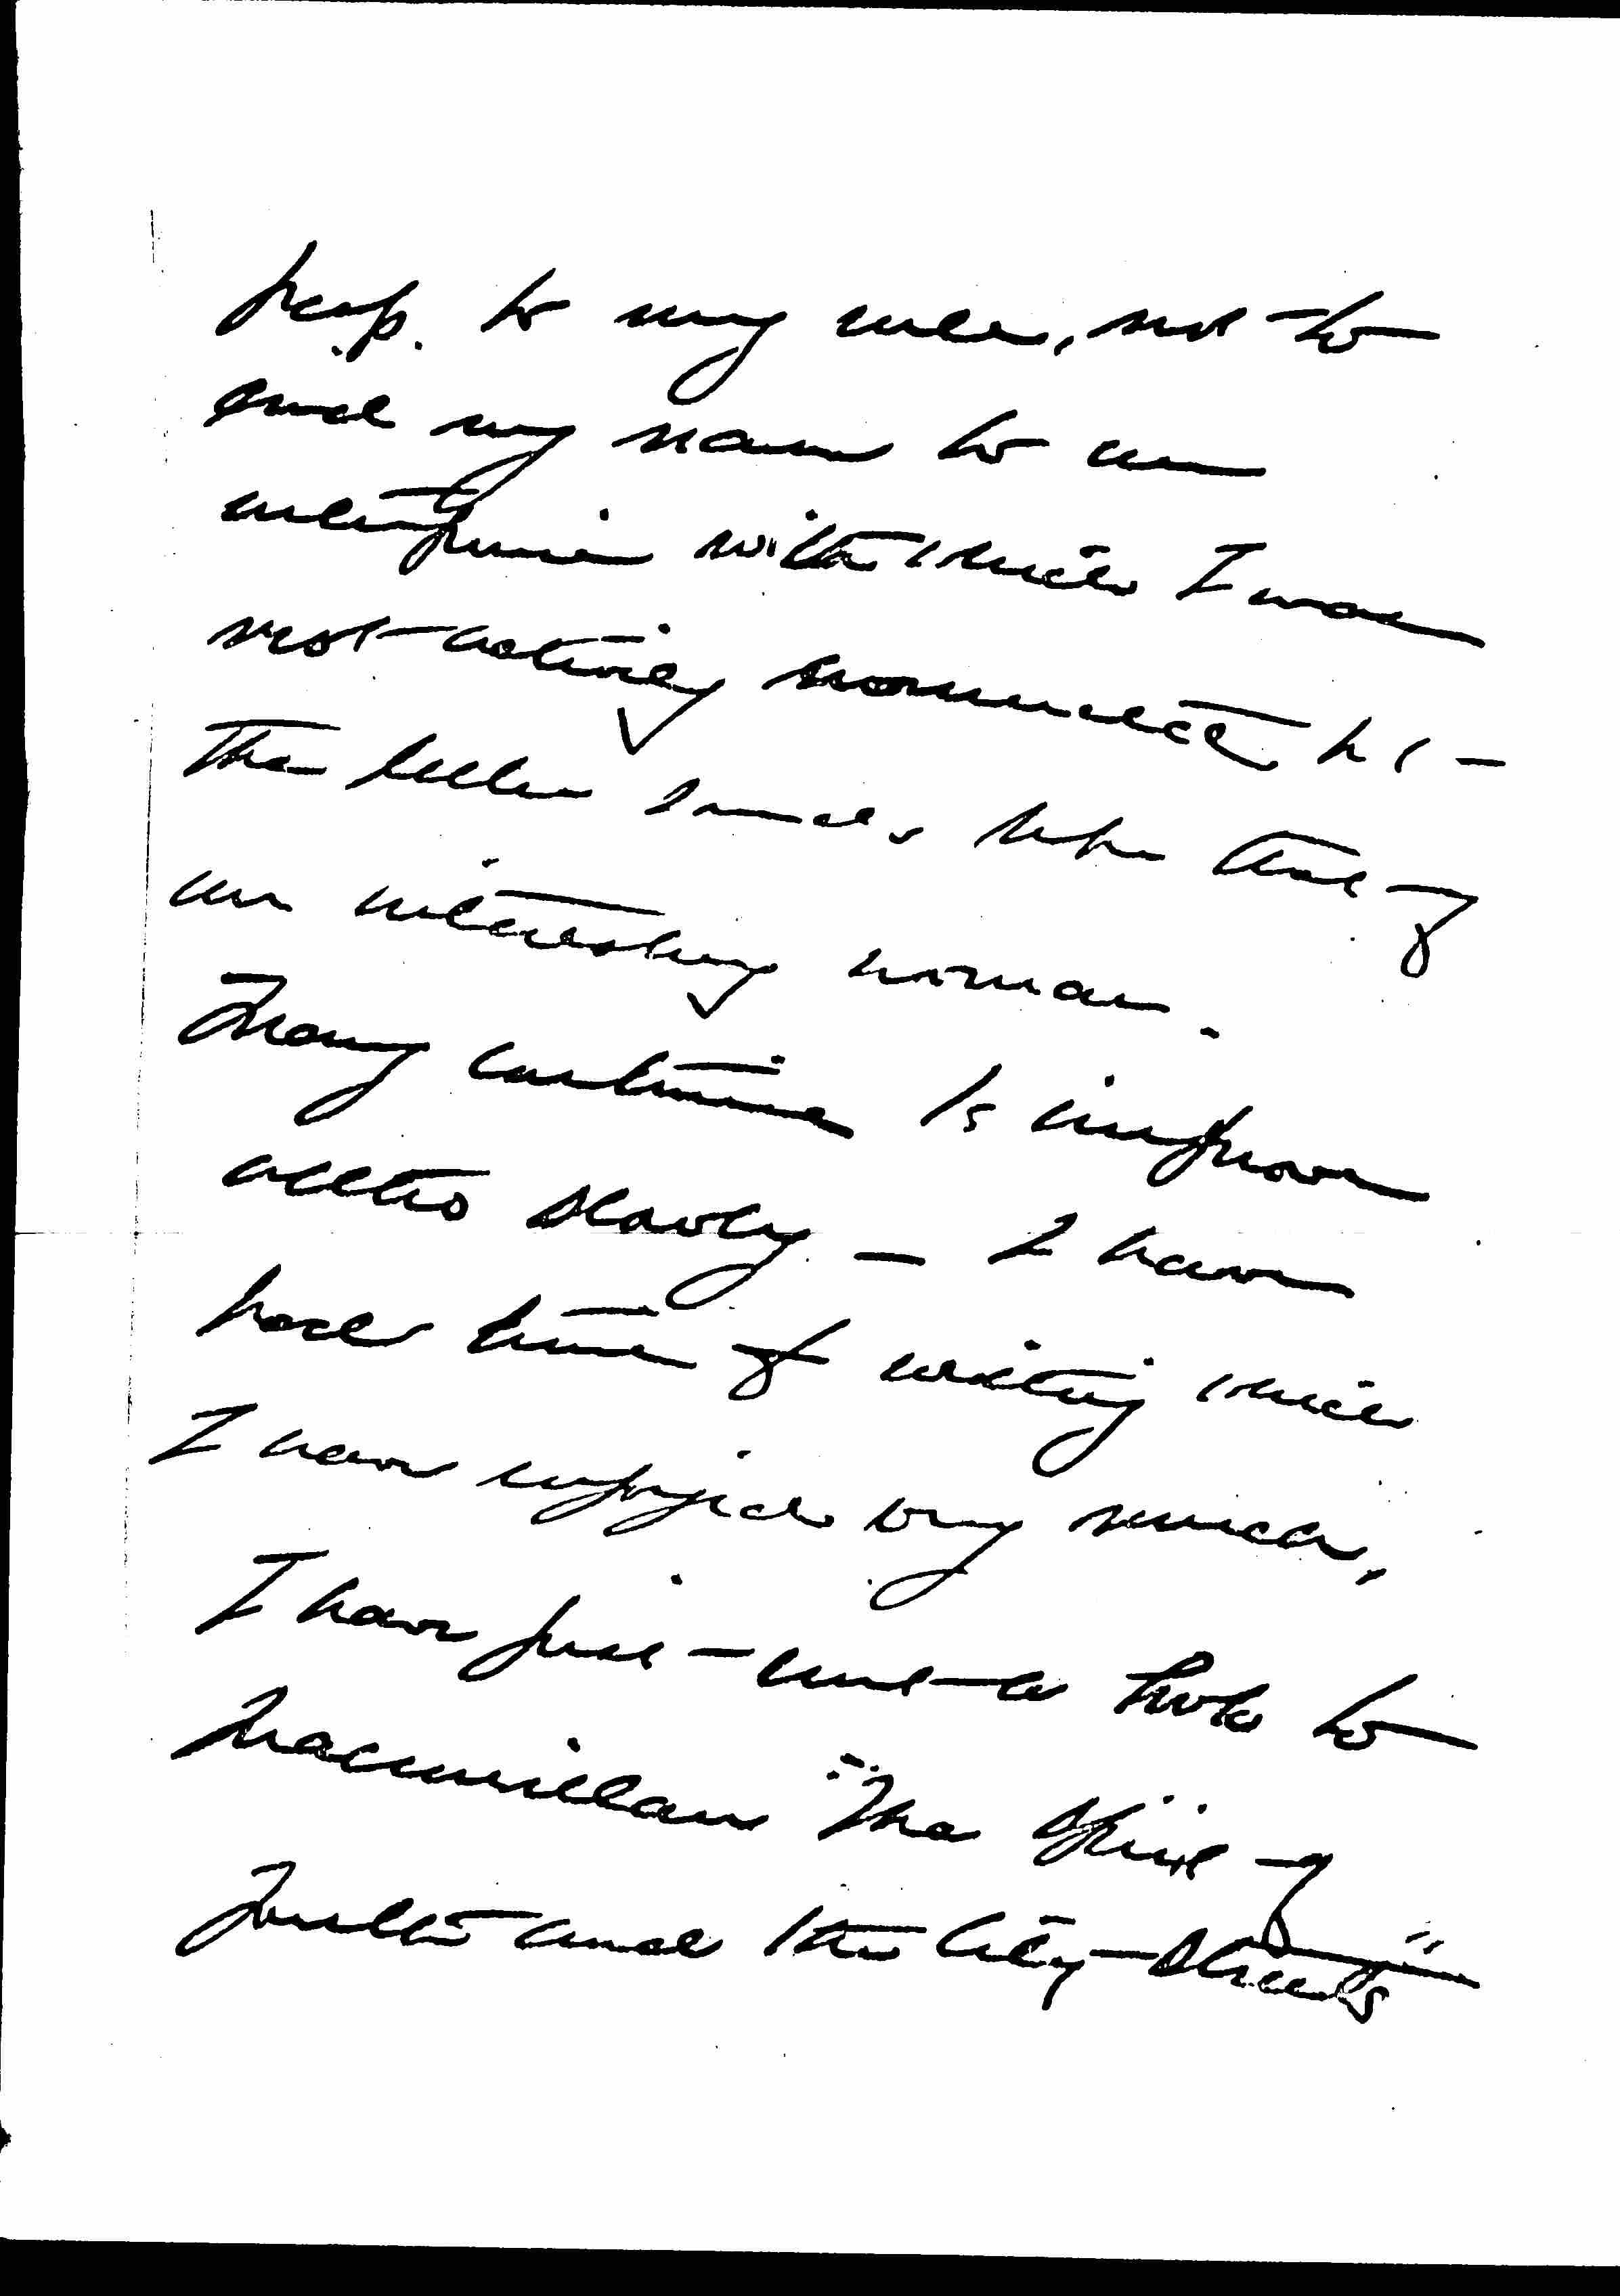 keep to my rule, not to
lend my name to an
enterprise with which I was
not actively connected, but
the letter sounds like that of
an interesting woman.
Mary continues to improve
altho slowly — I have
had time of writing which
I have enjoyed very much,
I have just sent a book to
Macmillan "The Spirit of
Youth and the City Streets"